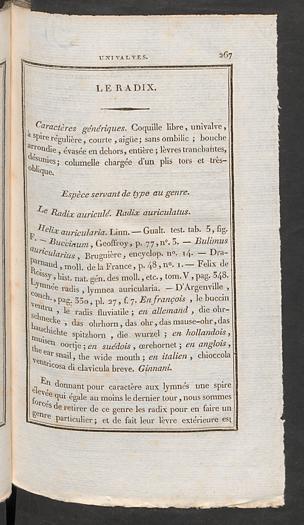 UNIVALVES. 267
LE RADIX.
Caractères génériques. Coquille libre, univalve,
à spire régulière, courte, aiguë; sans ombilic; bouche
arrondie, évasée en dehors, entière; lèvres tranchantes,
désunies; columelle chargée d'un plis tors et très-
oblique.
Espèce servant de type au genre.
Le Radix auriculé. Radix auriculatus.
Helix auricularia. Linn. — Gualt. test. tab. 5, fig.
F. — Buccinum, Geoffroy, p. 77, nº. 3. — Bulimus
auricularius, Bruguière, encyclop. nº. 14. — Dra-
parnaud, moll. de la France, p. 48, nº. 1. — Felix de
Roissy, hist. nat. gén. des moll., etc., tom. V, pag. 548.
Lymnée radis, lymnea auricularia. — D'Argenville,
conch., pag. 330, pl. 27, f. 7. En françois, le buccin
ventru, le radis fluviatile; en allemand, die ohr-
schnecke, das ohrhorn, das ohr, das mause-ohr, das
bauchichte spitzhorn, die wurzel; en hollandois,
muisen oortje; en suédois, œrehornet; en anglois,
the ear snail, the wide mouth; en italien, chioccola
ventricosa di clavicula breve. Ginnani.
En donnant pour caractère aux lymnés une spire
élevée qui égale au moins le dernier tour, nous sommes
forcés de retirer de ce genre les radix pour en faire un
genre particulier; et de fait leur lèvre extérieure est